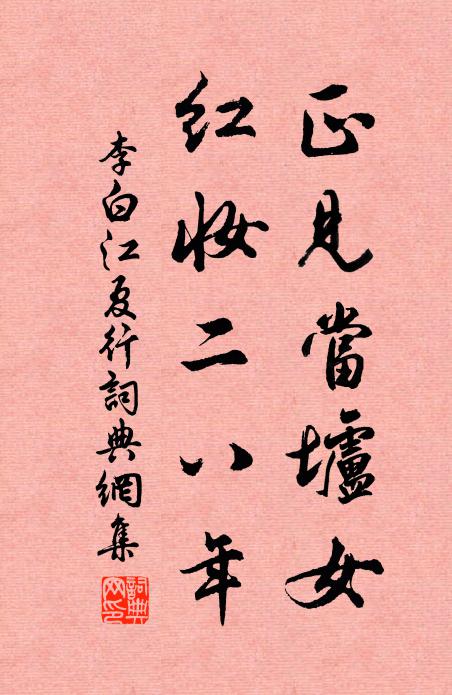 正見當壚女
紅妝二八年
李白江夏行詞典網集
詞典網印